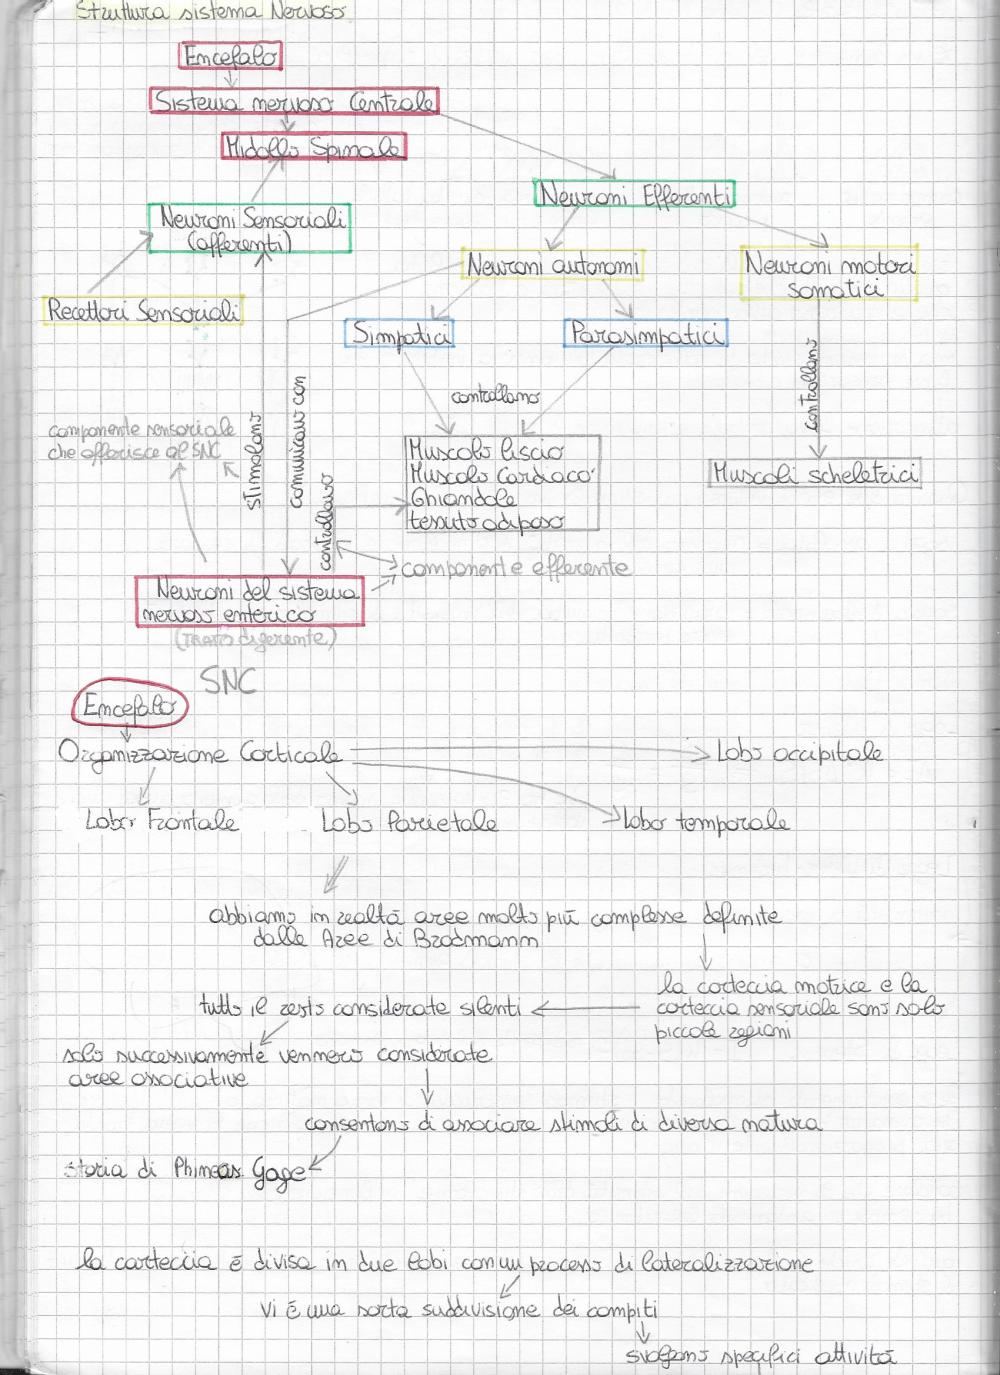 Struttura sistema Nervoso
Encefalo
Sistema nervoso Centrale
Midollo Spinale
Neuroni Efferenti
Neuroni Sensoriali
(afferenti)
Neuroni autonomi
Neuroni motori
somatici
Recettori Sensoriali
Simpatici
Parasimpatici
controllano
controllano
componente sensoriale
che afferisce al SNC
stimolano
comunicano con
controllano
Muscolo liscio
Muscolo Cardiaco
Ghiandole
tessuto adiposo
Muscoli scheletrici
componente efferente
Neuroni del sistema
nervoso enterico
(TRATTO digerente)
SNC
Encefalo
Organizzazione Corticale
Lobo occipitale
Lobo Frontale
Lobo Parietale
Lobo temporale
abbiamo in realtà aree molto più complesse definite
dalle Aree di Brodmann
la corteccia motrice e la
corteccia sensoriale sono solo
piccole regioni
tutto il resto considerate silenti
solo successivamente vennero considerate
aree associative
consentono di associare stimoli di diversa natura
storia di Phineas Gage
la corteccia è divisa in due lobi con un processo di lateralizzazione
vi è una sorta suddivisione dei compiti
svolgono specifici attività